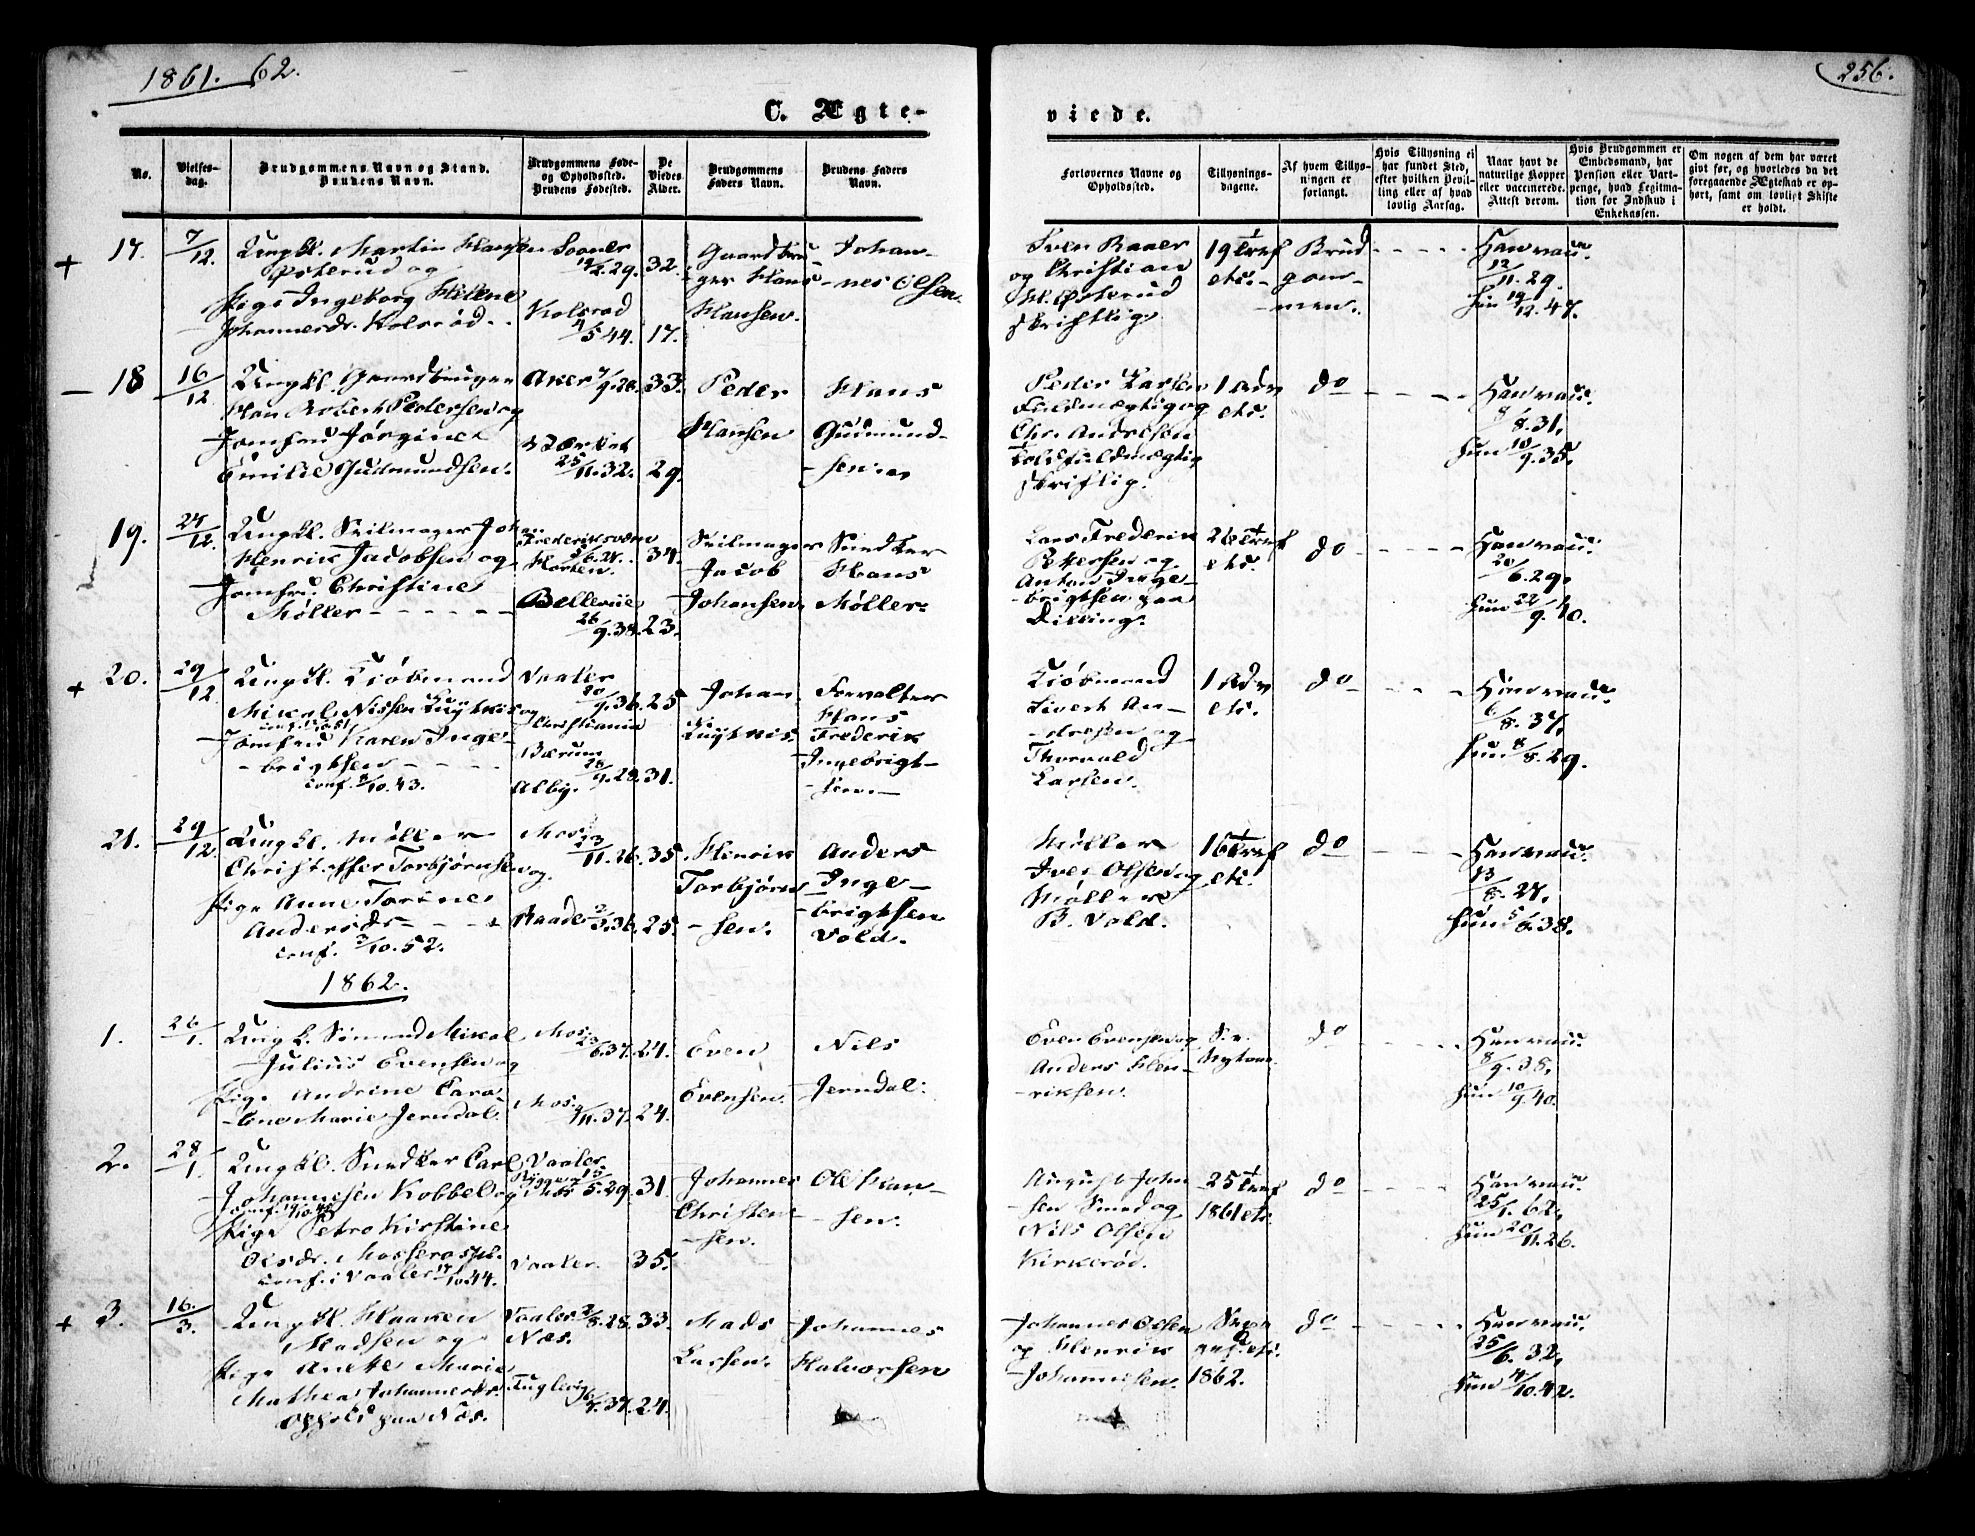 1861. 62.
256.
C. Ægte-
viede.
No.
Vielses-
dag.
Brudgommens Navn og Stand.
Brudens Navn.
Brudgommens Føde-
og Opholdssted.
Brudens Fødested.
De
Viedes
Alder.
Brudgommens
Faders Navn.
Brudens Faders
Navn.
Forlovernes Navne og
Opholdssted.
Tillysnings-
dagene.
Af hvem Tillys-
ningen er
forlangt.
Hvis Tillysning ei
har fundet Sted,
efter hvilken Bevil-
ling eller af hvad
lovlig Aarsag.
Naar havt de
naturlige Kopper
eller vaccinerede.
Attest derom.
Hvis Brudgommen er
Embedsmand, har
Pension eller Vart-
penge, hvad Legitima-
tion for Indskud i
Enkekassen.
Om nogen af dem har været
givt før, og hvorledes da det
foregaaende Ægteskab er op-
hørt, samt om lovligt Skifte
er holdt.
+ 17. 7/12.
Ungkl. Martin Hansen
Østerud og
Pige Ingeborg Helene
Johannesdr. Kolsrød.
32.
Kolsrød
4/5 44. 17.
Gaardbru-
ger Hans
Hansen.
Johan-
nes Olsen.
og Christian
H. Østerud
skriftlig.
19 Tref
etc.
Brud-
gom-
men.
Han vacc.
12/11. 29.
Hun 19/12. 47.
– 18 16/12
Ungkl. Gaardbruger
Hans Robert Pedersen og
Jomfru Jørgine
Emilie Gudmundsen.
Aker 33.
Værket
25/11. 32. 29.
Peder
Hansen
Hans
Gudmund-
sen
Peder Larsen
Fuldmægtig og
Chr. Andresen
Toldfuldmægtig
skriftlig.
1 Adv
etc.
do
Han vacc.
8/8. 31.
Hun 10/9. 35.
19. 27/12.
Ungkl. Seilmager Johan
Henrik Jacobsen og
Jomfru Christine
Møller
Frederiksværn
Horten. 34.
Bellevue
26/9. 38. 23.
Seilmager
Jacob
Johansen
Snedker
Hans
Møller.
Lars Frederik
Petersen og
Anton Inge-
brigtsen paa
Dilling.
26 Tref
etc.
do
Han vacc.
20/6. 29.
Hun 22/9. 40.
+ 20. 29/12
Ungkl. Kjøbmand
Mikal Nissen Lyytkis og
Jomfru Karen Inge-
brigtsen
conf. 8/10. 43.
Vaaler
20/9. 36. 25
Christiania
Bærum
28/9. 28. 31.
Alby.
Johan
Forvalter
Hans
Frederik
Ingebrigt-
sen.
Kjøbmand
Sivert An-
dresen og
Thorvald
Larsen.
1 Adv
etc.
do
Han vacc.
6/8. 37.
Hun 8/8. 29.
21. 29/12.
Ungkl. Møller
Christoffer Torbjørnsen og
Pige Anne Torine
Andersdr.
conf. 3/10. 52.
Mos
23/11. 26. 35.
Raade 2/3. 36. 25.
Henrik
Torbjørn-
sen.
Anders
Inge-
brigtsen
Vold.
Møller
Iver Olsen og
Møller
B. Vold.
16 Tref
etc.
do
Han vacc.
13/8. 27.
Hun 5/6. 38.
1862.
1. 26/1.
Ungk. Simund Mikal
Julius Evensen og
Pige Andrine Caro-
line Marie Jerndal.
Mos
23/6. 37. 24.
Mos.
9/11. 37. 24.
Even
Evensen.
Nils
Jerndal.
Even Evensen og
Anders Hen-
riksen.
Nytaar.
do
Han vacc.
8/9. 38.
Hun 10/9. 40.
2. 28/1.
Ungkl. Snedker Carl
Johannesen Kobbel og
Pige Petro Kirstine
Olsdr. Mosserøspl.
conf. i Vaaler 13/10. 44.
Vaaler.
Rygge og
Mos 15/5. 29. 31.
Vaaler. 35.
Johannes
Christen-
sen.
Ole Han-
sen.
August John-
sen Smed og
Nils Olsen
Kirkerød.
25 Tref
1861 etc.
do
Han vacc.
25/1. 62.
Hun 20/11. 26.
+ 3. 16/3.
Ungkl. Haaken
Madsen og
Pige Anete Marie
Mathea Johannesdr.
Ophold paa Næs.
Vaaler 2/8. 28. 33.
Næs.
Fuglevig
37. 24.
Mads
Larsen.
Johannes
Halvorsen
Johannes Olsen
og Henrik
Johannesen.
1862.
do
Han vacc.
25/6. 32.
Hun 4/10. 42.